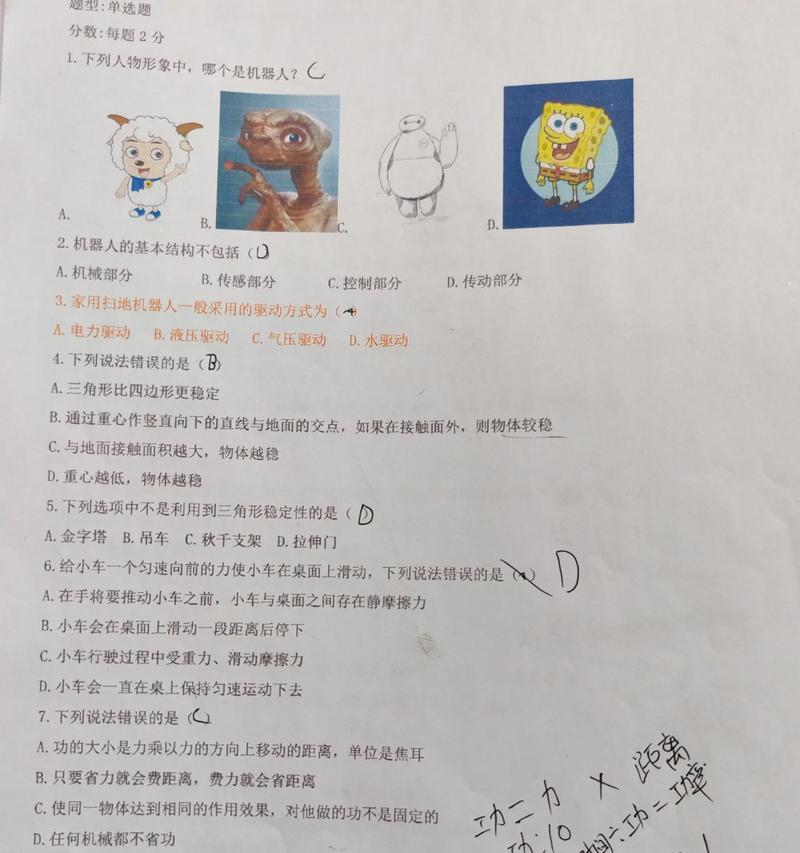 题型:单选题
分数:每题2分
1.下列人物形象中，哪个是机器人？C
A. B. C. D.
2.机器人的基本结构不包括（D）
A.机械部分 B.传感部分 C.控制部分 D.传动部分
3.家用扫地机器人一般采用的驱动方式为（A）
A.电力驱动 B.液压驱动 C.气压驱动 D.水驱动
4.下列说法错误的是（B）
A.三角形比四边形更稳定
B.通过重心作竖直向下的直线与地面的交点，如果在接触面外，则物体较稳
C.与地面接触面积越大，物体越稳
D.重心越低，物体越稳
5.下列选项中不是利用到三角形稳定性的是（D）
A.金字塔 B.吊车 C.秋千支架 D.拉伸门
6.给小车一个匀速向前的力使小车在桌面上滑动，下列说法错误的是（ ）D
A.在手将要推动小车之前，小车与桌面之间存在静摩擦力
B.小车会在桌面上滑动一段距离后停下
C.小车行驶过程中受重力、滑动摩擦力
D.小车会一直在桌上保持匀速运动下去
7.下列说法错误的是（C）
A.功的大小是力乘以力的方向上移动的距离，单位是焦耳
B.只要省力就会费距离，费力就会省距离
C.使同一物体达到相同的作用效果，对他做的功不是固定的
D.任何机械都不省功
功=力×距离
功=功率